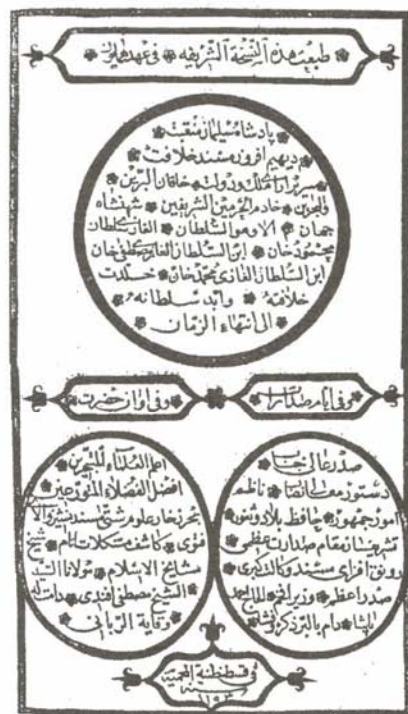 طبعت هذه النسخة الشريفه فى عهد همايون
پادشاه سليمان منقبت
ديهيم افروز مسند خلافت
سرير اراى ملك ودولت خاقان البرين
والبحرين خادم الحرمين الشريفين شهنشاه
جهان السلطان الغازى سلطان
محمود خان ابن السلطان الغازى مصطفى خان
ابن السلطان الغازى محمد خان خلدت
خلافته وابد سلطانه
الى انتهاء الزمان
وفى ايام صدارت
صدر عالى جناب
دستور معلى ناظم
امور جمهور حافظ بلاد وثغور
مقام صدارت عظمى
رونق افزاى مسند وكالت كبرى
صدر اعظم الحاج احمد
پاشا دام بالبر
وفى اوان حضرت
اعلم العلماء المتبحرين
افضل الفضلاء المتورعين
بحر زخار علوم شتى مسند
فتوى كاشف مشكلات انام شيخ
مشايخ الاسلام مولانا السيد
الشيخ مصطفى افندى دامت له
وقاية الربانى
فى قسطنطنية المحمية